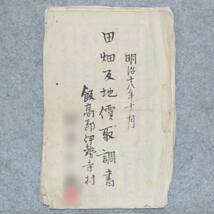 明治十八年十月
田畑反地價取調書
飯高郡伊勢寺村